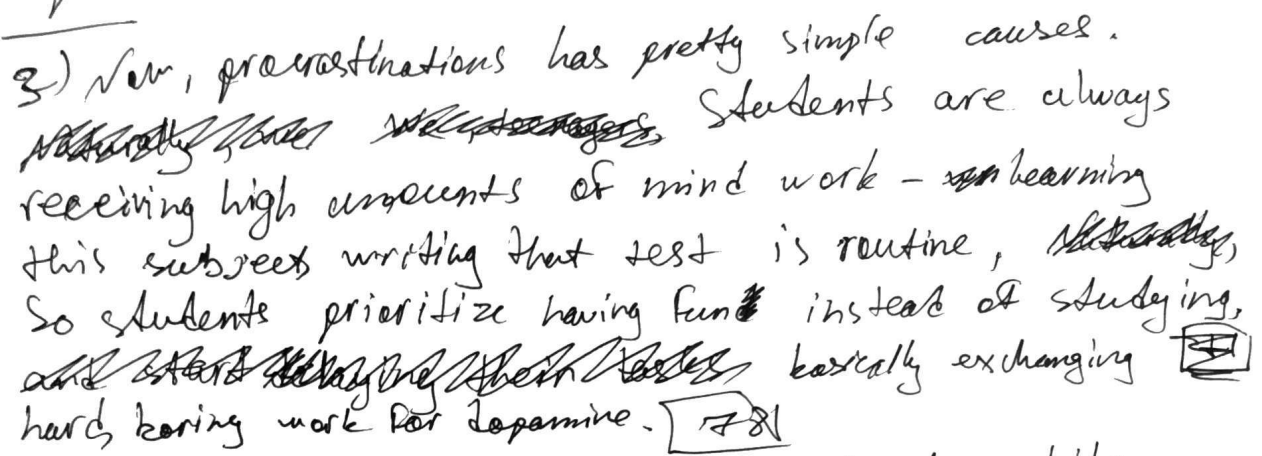 3) Now, procrastinations has pretty simple causes.
Students are always
receiving high amounts of mind work - learning
this subject writing that test is routine,
So students prioritize having fun instead of studying,
basically exchanging
hard, boring work for dopamine. 78